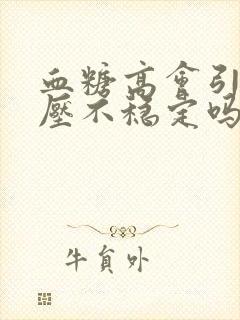 血糖高會引
壓不穩定嗎
牛負外